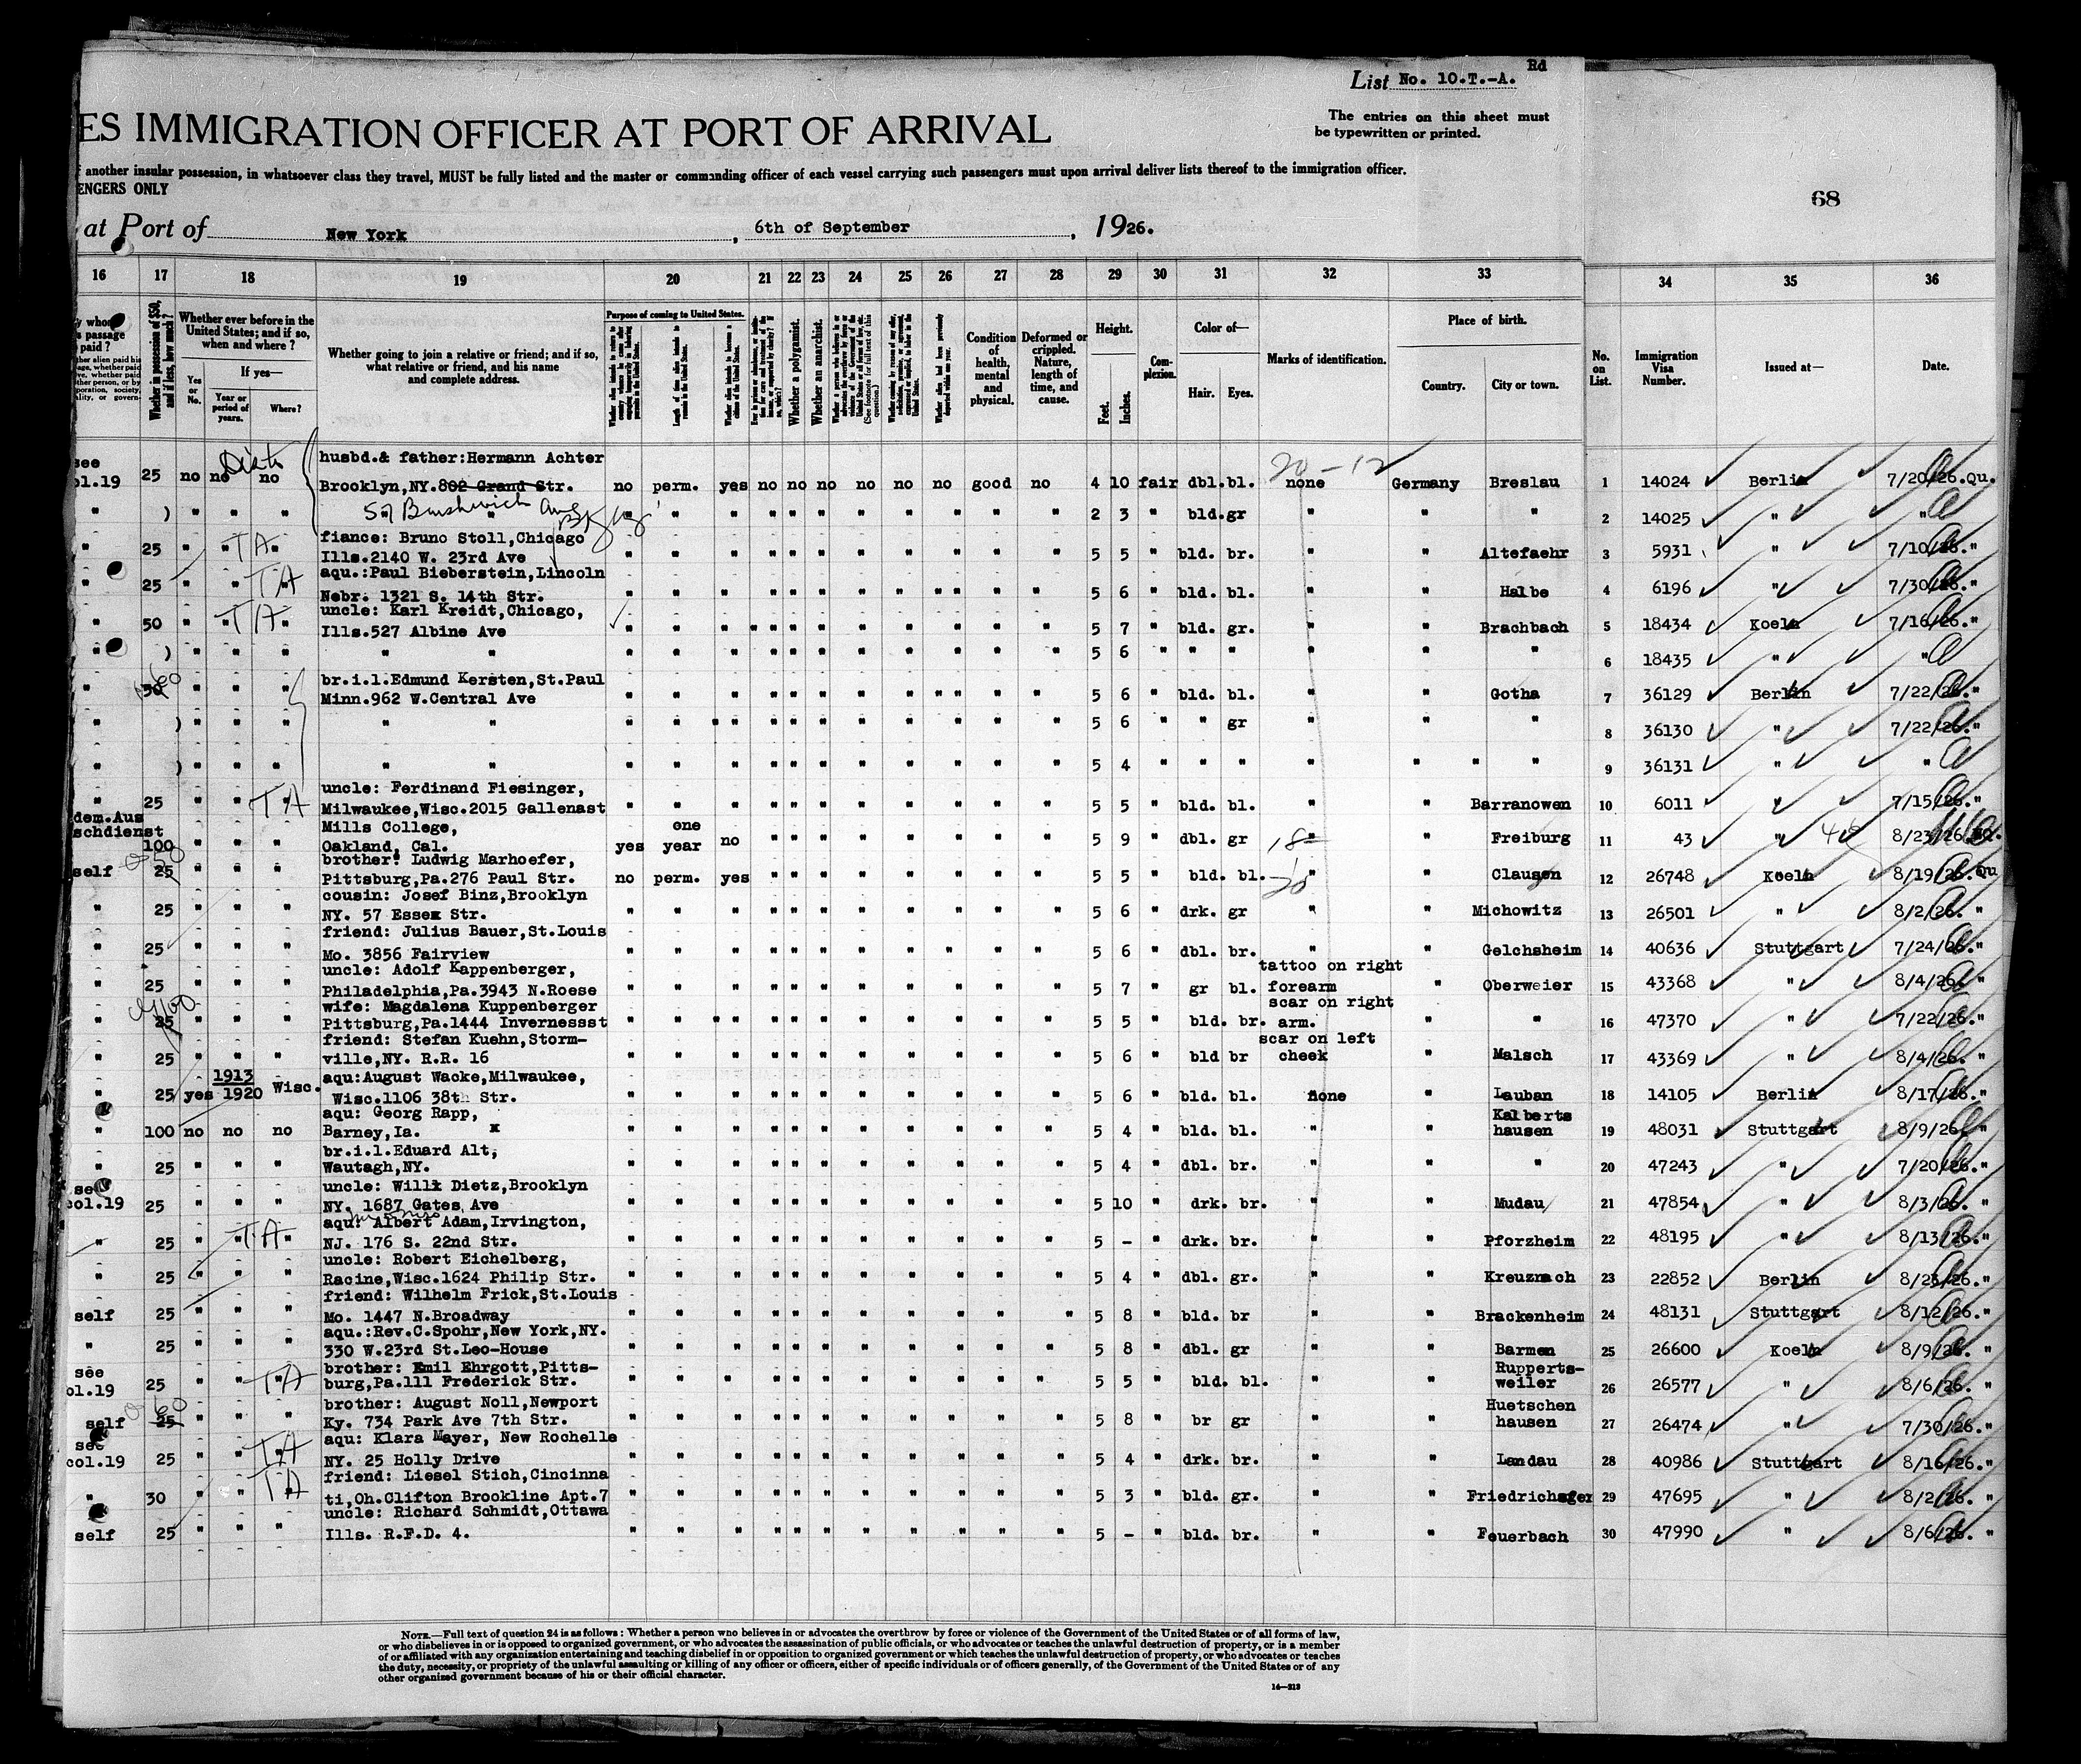 List No. 10.T.-A. Rd
The entries on this sheet must
be typewritten or printed.
ES IMMIGRATION OFFICER AT PORT OF ARRIVAL
another insular possession, in whatsoever class they travel, MUST be fully listed and the master or commanding officer of each vessel carrying such passengers must upon arrival deliver lists thereof to the immigration officer.
ENGERS ONLY
68
at Port of New York, 6th of September, 1926.
16 17 18 19 20 21 22 23 24 25 26 27 28 29 30 31 32 33 34 35 36
Whether in possession of $50, and if less, how much?
Whether ever before in the United States; and if so, when and where?
Yes or No.
If yes—
Year or period of years.
Where?
Whether going to join a relative or friend; and if so, what relative or friend, and his name and complete address.
Purpose of coming to United States.
Whether a polygamist.
Whether an anarchist.
Condition of health, mental and physical.
Deformed or crippled. Nature, length of time, and cause.
Height.
Feet.
Inches.
Complexion.
Color of—
Hair.
Eyes.
Marks of identification.
Place of birth.
Country.
City or town.
No. on List.
Immigration Visa Number.
Issued at—
Date.
see husbd.& father:Hermann Achter
ol.19 25 no no no Brooklyn,NY.802 Grand Str. no perm. yes no no no no no no good no 4 10 fair dbl. bl. none Germany Breslau 1 14024 Berlin 7/20/26.Qu.
" ) " " " 57 Bushwich Ave " " " " " " " " " " " " 2 3 " bld. gr " " " 2 14025 " "
fiance: Bruno Stoll,Chicago
" 25 " " TA " Ills.2140 W. 23rd Ave " " " " " " " " " " " 5 5 " bld. br. " " Altefaehr 3 5931 " 7/10/26."
aqu.:Paul Bieberstein,Lincoln
" 25 " " TA " Nebr. 1321 S. 14th Str. " " " " " " " " " " " 5 6 " bld. bl. " " Halbe 4 6196 " 7/30/26."
uncle: Karl Kreidt,Chicago,
" 50 " " TA " Ills.527 Albine Ave " " " " " " " " " " " 5 7 " bld. gr. " " Brachbach 5 18434 Koeln 7/16/26."
" ) " " " " " " " " " " " " " " " " " 5 6 " " " " " " 6 18435 " "
br.i.l.Edmund Kersten,St.Paul
" 50 " " " Minn.962 W.Central Ave " " " " " " " " " " " 5 6 " bld. bl. " " Gotha 7 36129 Berlin 7/22/26."
" ) " " " " " " " " " " " " " " " " " 5 6 " " gr " " " 8 36130 " 7/22/26."
" ) " " " " " " " " " " " " " " " " " 5 4 " " " " " " 9 36131 " "
uncle: Ferdinand Fiesinger,
" 25 " " TA " Milwaukee,Wisc.2015 Gallenast " " " " " " " " " " " 5 5 " bld. bl. " " Barranowen 10 6011 " 7/15/26."
dem.Aus Mills College, one
schdienst 100 " " " Oakland, Cal. yes year no " " " " " " " " 5 9 " dbl. gr " " Freiburg 11 43 " 8/23/26
brother: Ludwig Marhoefer,
self 25 " " " Pittsburg,Pa.276 Paul Str. no perm. yes " " " " " " " " 5 5 " bld. bl. " " Clausen 12 26748 Koeln 8/19/26.Qu
cousin: Josef Binz,Brooklyn
" 25 " " " NY. 57 Essex Str. " " " " " " " " " " " 5 6 " drk. gr " " Michowitz 13 26501 " 8/2/26. "
friend: Julius Bauer,St.Louis
" 25 " " " Mo. 3856 Fairview " " " " " " " " " " " 5 6 " dbl. br. " " Gelchsheim 14 40636 Stuttgart 7/24/26."
uncle: Adolf Kappenberger, tattoo on right
" 25 " " " Philadelphia,Pa.3943 N.Roese " " " " " " " " " " " 5 7 " gr bl. forearm " Oberweier 15 43368 " 8/4/26. "
wife: Magdalena Kuppenberger scar on right
" 25 " " " Pittsburg,Pa.1444 Invernessst " " " " " " " " " " " 5 5 " bld. br. arm. " " 16 47370 " 7/22/26."
friend: Stefan Kuehn,Storm- scar on left
" 25 " " " ville,NY. R.R. 16 " " " " " " " " " " " 5 6 " bld br cheek " Malsch 17 43369 " 8/4/26. "
1913 aqu:August Wacke,Milwaukee,
" 25 yes 1920 Wisc. Wisc.1106 38th Str. " " " " " " " " " " " 5 6 " bld. bl. none " Lauban 18 14105 Berlin 8/17/26."
aqu: Georg Rapp, Kalberts
" 100 no no no Barney,Ia. x " " " " " " " " " " " 5 4 " bld. bl. " " hausen 19 48031 Stuttgart 8/9/26. "
br.i.l.Eduard Alt,
" 25 " " " Wautagh,NY. " " " " " " " " " " " 5 4 " dbl. br. " " " 20 47243 " 7/20/26."
see uncle: Willi Dietz,Brooklyn
col.19 25 " " " NY. 1687 Gates Ave " " " " " " " " " " " 5 10 " drk. br. " " Mudau 21 47854 " 8/3/26. "
aqu: Albert Adam,Irvington,
" 25 " T.A. " NJ. 176 S. 22nd Str. " " " " " " " " " " " 5 - " drk. br. " " Pforzheim 22 48195 " 8/13/26."
uncle: Robert Eichelberg,
" 25 " " " Racine,Wisc.1624 Philip Str. " " " " " " " " " " " 5 4 " dbl. gr. " " Kreuznach 23 22852 Berlin 8/23/26."
friend: Wilhelm Frick,St.Louis
self 25 " " " Mo. 1447 N.Broadway " " " " " " " " " " " 5 8 " bld. br " " Brackenheim 24 48131 Stuttgart 8/12/26."
aqu.:Rev.C.Spohr,New York,NY.
" 25 " " " 330 W.23rd St.Leo-House " " " " " " " " " " " 5 8 " dbl. gr " " Barmen 25 26600 Koeln 8/9/26. "
see brother: Emil Ehrgott,Pitts- Rupperts-
ol.19 25 " " TA burg,Pa.111 Frederick Str. " " " " " " " " " " " 5 5 " bld. bl. " " weiler 26 26577 " 8/6/26. "
brother: August Noll,Newport Huetschen
self 25 " " " Ky. 734 Park Ave 7th Str. " " " " " " " " " " " 5 8 " br gr " " hausen 27 26474 " 7/30/26 "
see aqu: Klara Mayer, New Rochelle
col.19 25 " " TA NY. 25 Holly Drive " " " " " " " " " " " 5 4 " drk. br. " " Landau 28 40986 Stuttgart 8/16/26."
friend: Liesel Stich,Cincinna
" 30 " " TA ti,Oh.Clifton Brookline Apt.7 " " " " " " " " " " " 5 3 " bld. gr. " " 29 47695 " 8/2/26. "
uncle: Richard Schmidt,Ottawa
self 25 " " " Ills. R.F.D. 4. " " " " " " " " " " " 5 - " bld. br. " " Feuerbach 30 47990 " 8/6/26. "
NOTE.—Full text of question 24 is as follows: Whether a person who believes in or advocates the overthrow by force or violence of the Government of the United States or of all forms of law,
or who disbelieves in or is opposed to organized government, or who advocates the assassination of public officials, or who advocates or teaches the unlawful destruction of property, or is a member
of or affiliated with any organization entertaining and teaching disbelief in or opposition to organized government or which teaches the unlawful destruction of property, or who advocates or teaches
the duty, necessity, or propriety of the unlawful assaulting or killing of any officer or officers, either of specific individuals or of officers generally, of the Government of the United States or of any
other organized government because of his or their official character.
14—313